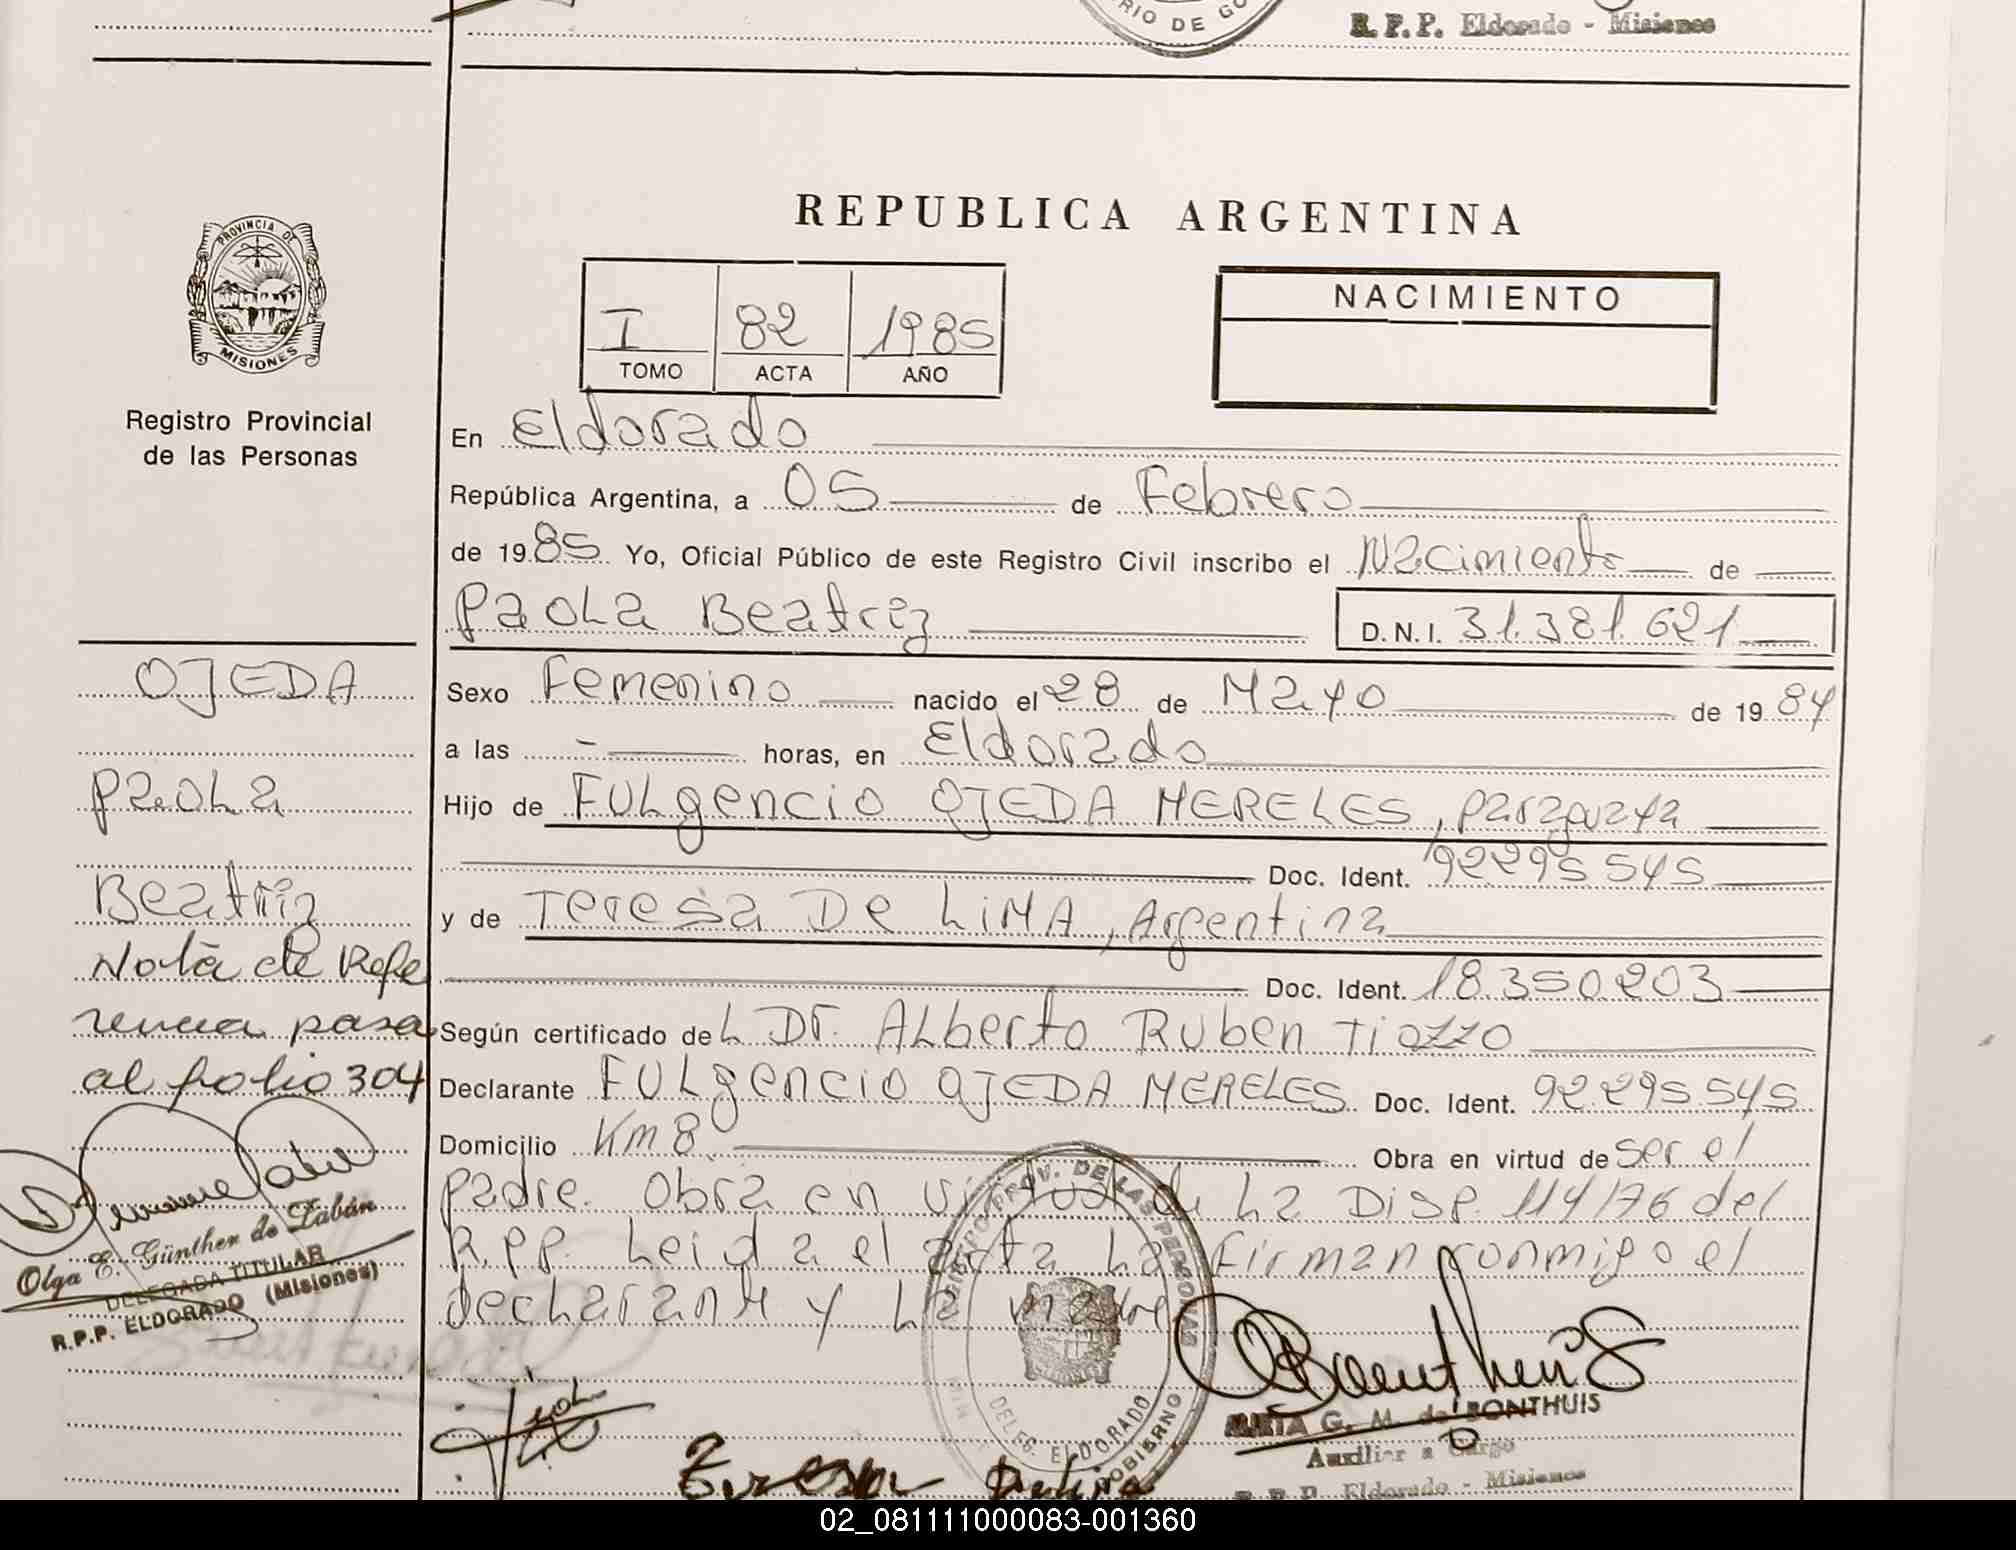 RIO DE GO
R.P.P. Eldorado - Misiones
PROVINCIA DE
MISIONES
Registro Provincial
de las Personas
REPUBLICA ARGENTINA
I 82 1985
TOMO ACTA AÑO
NACIMIENTO
En Eldorado
República Argentina, a 05 de Febrero
de 1985 Yo, Oficial Público de este Registro Civil inscribo el Nacimiento de
Paola Beatriz D.N.I. 31.381.621
OJEDA
Paola
Beatriz
Nota de Refe
rencia pasa
al folio 304
Olga E. Günther de Zabán
DELEGADA TITULAR
R.P.P. ELDORADO (Misiones)
Sexo Femenino nacido el 28 de Mayo de 1984
a las - horas, en Eldorado
Hijo de Fulgencio OJEDA MERELES, paraguaya
Doc. Ident. 92295545
y de Teresa De LiMA, Argentina
Doc. Ident. 18.350.203
Según certificado del Dr. Alberto Ruben Tiozzo
Declarante Fulgencio OJEDA MERELES Doc. Ident. 92.295.545
Domicilio Km 8 Obra en virtud de ser el
padre. Obra en virtud de la Disp. 114/76 del
R.P.P. Leida el acta la firman conmigo el
declarante y la madre
REGISTRO PROV. DE LAS PERSONAS
DELEG. ELDORADO
Teresa
MIRTA G. M. de BONTHUIS
Auxiliar a Cargo
R.P.P. Eldorado - Misiones
02_081111000083-001360